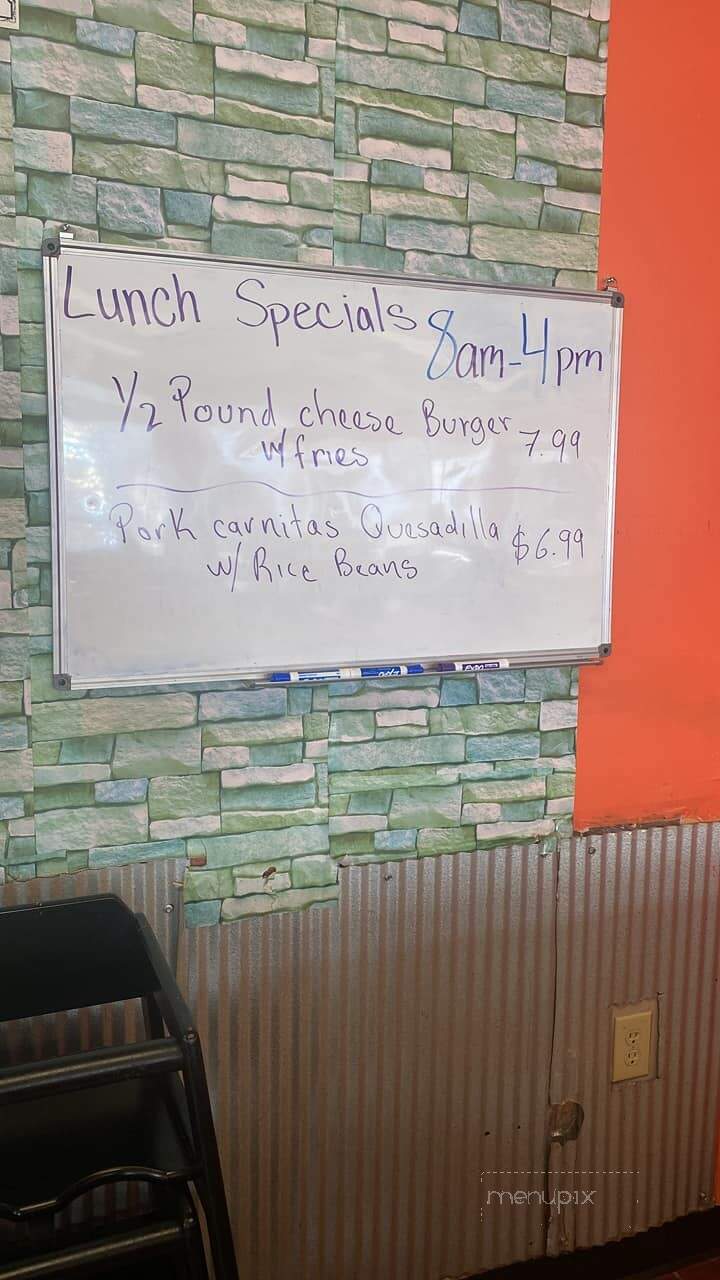 Lunch Specials 8am-4pm
1/2 Pound cheese Burger 7.99
w/fries
Pork carnitas Quesadilla $6.99
w/ Rice Beans
menupix